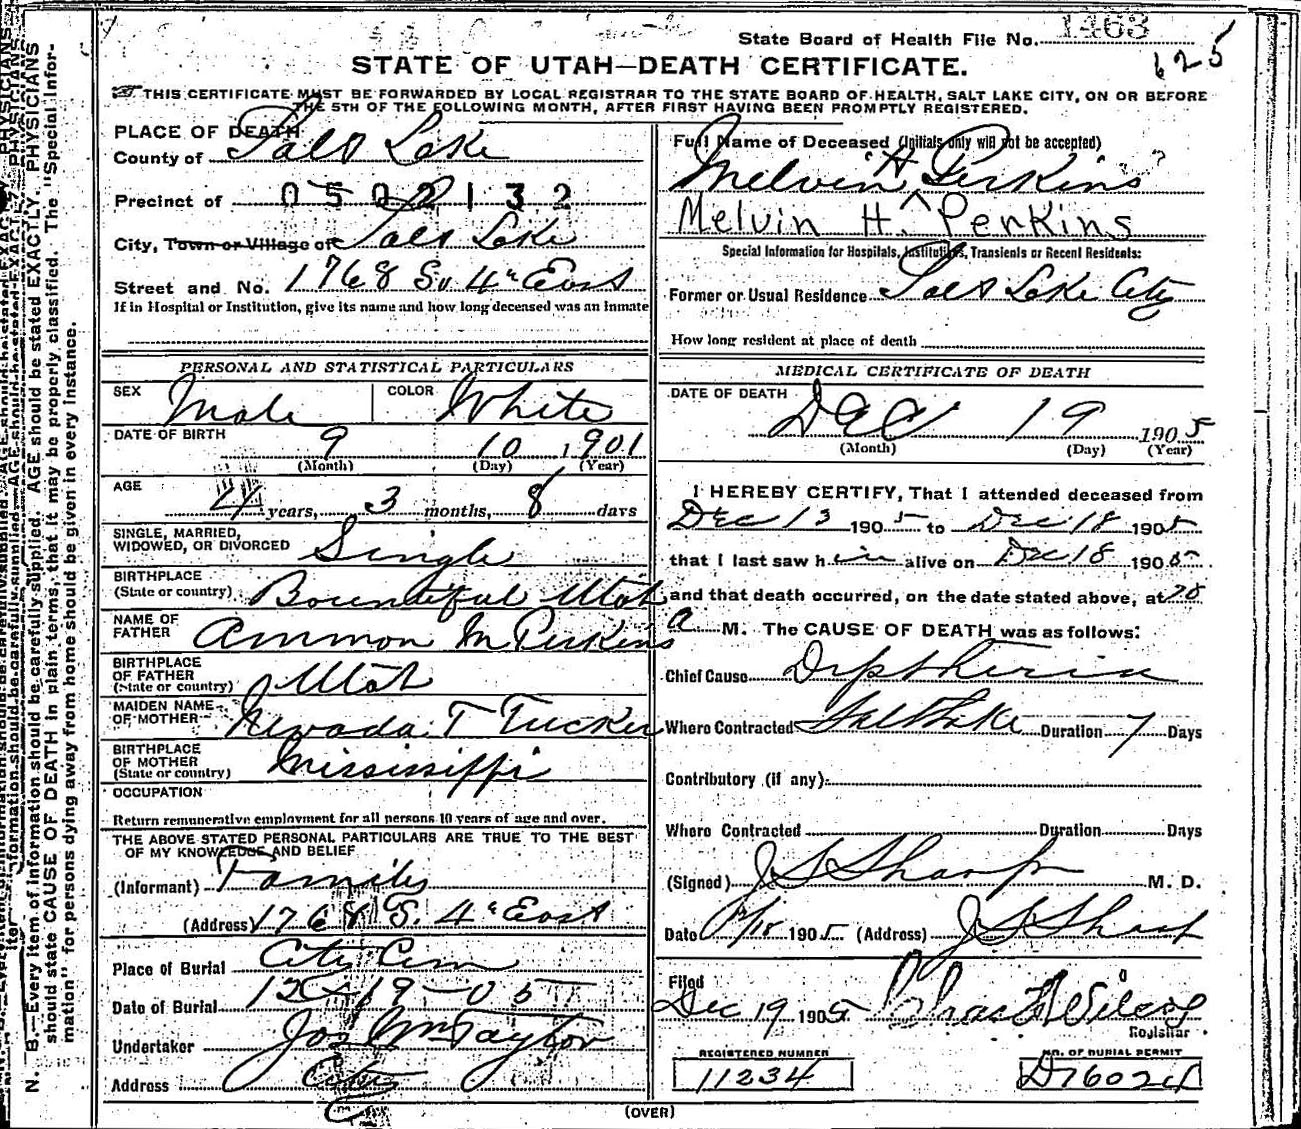 State Board of Health File No. 1463
625
STATE OF UTAH—DEATH CERTIFICATE.
THIS CERTIFICATE MUST BE FORWARDED BY LOCAL REGISTRAR TO THE STATE BOARD OF HEALTH, SALT LAKE CITY, ON OR BEFORE
THE 5TH OF THE FOLLOWING MONTH, AFTER FIRST HAVING BEEN PROMPTLY REGISTERED.
PLACE OF DEATH
County of Salt Lake
Precinct of 0502132
City, Town or Village of Salt Lake
Street and No. 1768 So. 4" East
If in Hospital or Institution, give its name and how long deceased was an inmate
PERSONAL AND STATISTICAL PARTICULARS
SEX Male COLOR White
DATE OF BIRTH 9 10 1901
(Month) (Day) (Year)
AGE 4 years, 3 months, 8 days
SINGLE, MARRIED,
WIDOWED, OR DIVORCED Single
BIRTHPLACE
(State or country) Bountiful Utah
NAME OF
FATHER Ammon M Perkins
BIRTHPLACE
OF FATHER
(State or country) Utah
MAIDEN NAME
OF MOTHER Nevada T Tucker
BIRTHPLACE
OF MOTHER
(State or country) Mississippi
OCCUPATION
Return remunerative employment for all persons 10 years of age and over.
THE ABOVE STATED PERSONAL PARTICULARS ARE TRUE TO THE BEST
OF MY KNOWLEDGE AND BELIEF
(Informant) Family
(Address) 1768 S. 4" East
Place of Burial City Cem
Date of Burial 12-19-05
Undertaker Jos Wm Taylor
Address City
Full Name of Deceased (Initials only will not be accepted)
Melvin H Perkins ?
Melvin H. Perkins
Special Information for Hospitals, Institutions, Transients or Recent Residents:
Former or Usual Residence Salt Lake City
How long resident at place of death
MEDICAL CERTIFICATE OF DEATH
DATE OF DEATH Dec 19 1905
(Month) (Day) (Year)
I HEREBY CERTIFY, That I attended deceased from
Dec 13 1905 to Dec 18 1905
that I last saw him alive on Dec 18 1905
and that death occurred, on the date stated above, at
a M. The CAUSE OF DEATH was as follows:
Chief Cause Diptheria
Where Contracted Salt Lake Duration 7 Days
Contributory (if any):
Where Contracted Duration Days
(Signed) J S Sharp M. D.
Date 12/18 1905 (Address) J S Sharp
Filed
Dec 19 1905 Chas H Wilcox
Registrar
REGISTERED NUMBER
11234
NO. OF BURIAL PERMIT
D76024
(OVER)
N. B.—Every item of information should be carefully supplied. AGE should be stated EXACTLY. PHYSICIANS
should state CAUSE OF DEATH in plain terms, that it may be properly classified. The "Special Infor-
mation" for persons dying away from home should be given in every instance.